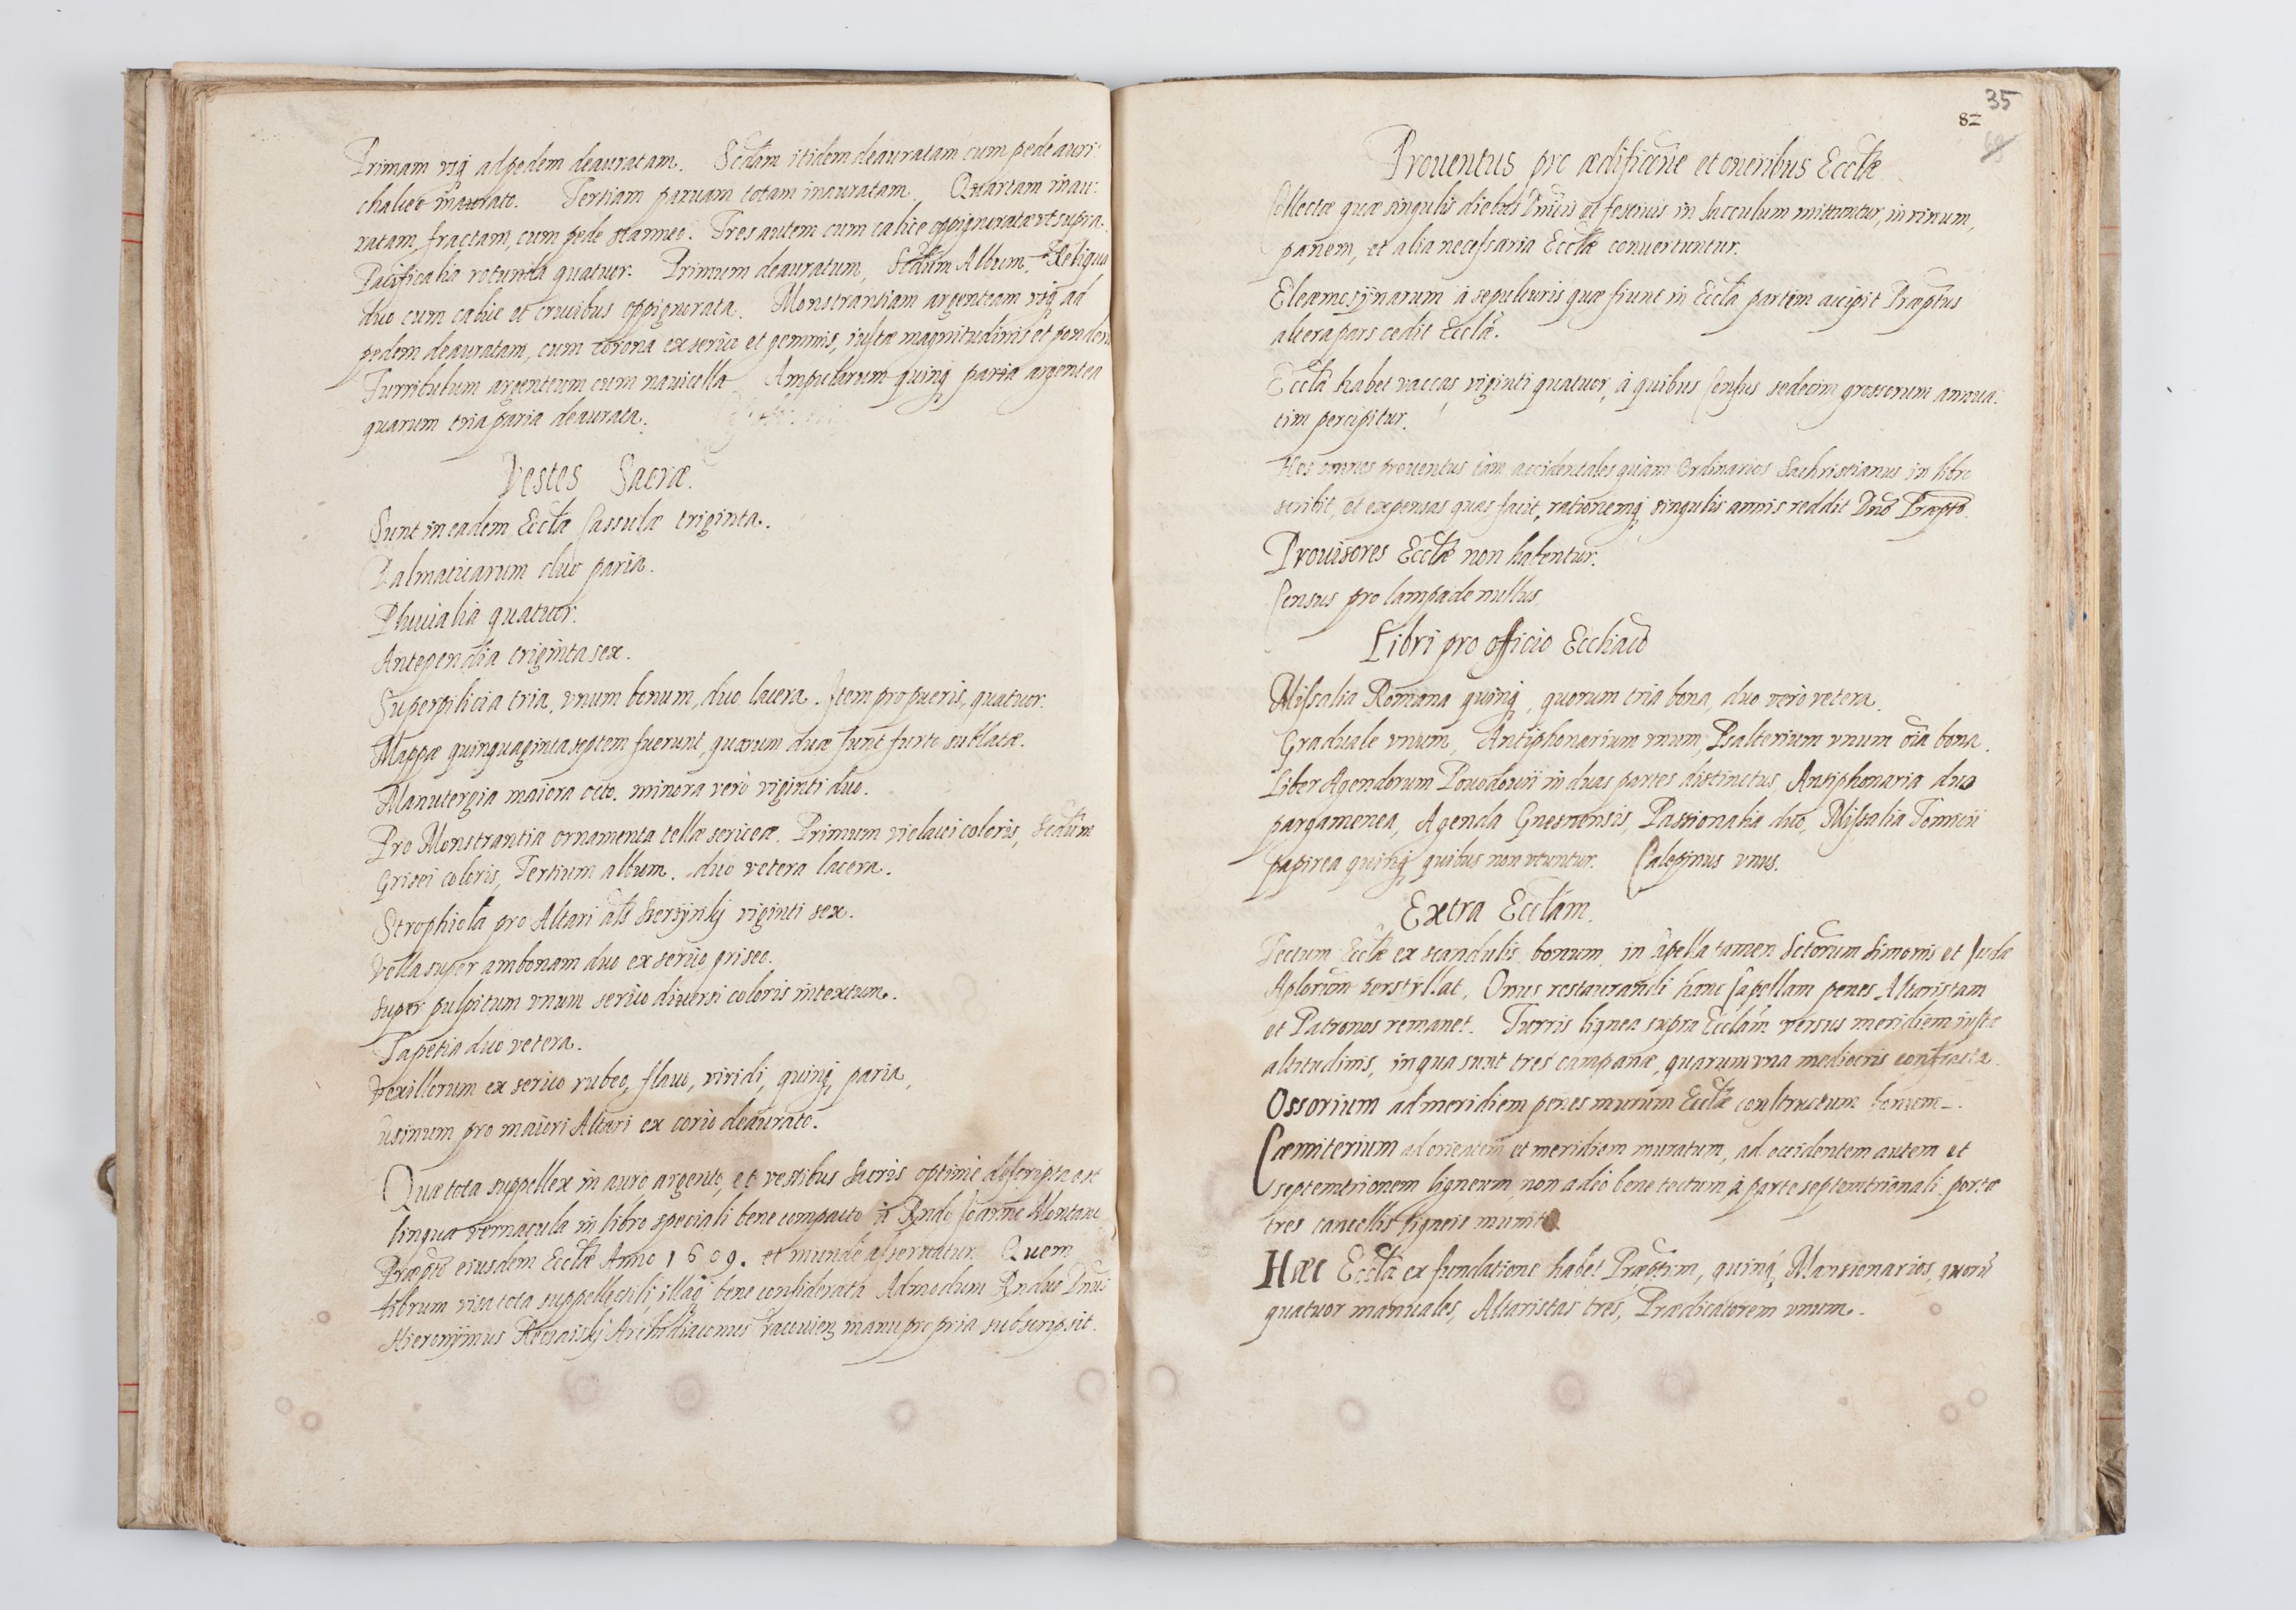 Primam vsq ad pedem deauratam. Scdam itidem deauratam cum pede auri:
chalceo inaurato. Tertiam paruam totam inauratam. Quartam inau:
ratam, fractam, cum pede stanneo. Tres autem cum calice oppignoratæ vt supra.
Pacificalia rotunda quatuor. Primum deauratum, Scdum Album, Reliqua
duo cum calice et crucibus oppignorata. Monstrantiam argenteam vsq ad
pedem deauratam, cum corona ex serico et gemmis, iustæ magnitudinis et ponderis
Turribulum argenteum cum nauicella. Ampularum quinq paria argentea
quarum tria paria deaurata.
Vestes Sacræ.
Sunt in eadem Eccla Cassulæ triginta.
Dalmaticarum duo paria.
Pluuialia quatuor.
Antependia triginta sex.
Superpilicia tria, vnum bonum, duo lacera. Item pro pueris, quatuor.
Mappæ quinquaginta septem fuerunt, quarum duæ sunt furto sublatæ.
Manutergia maiora octo. minora verò viginti duo.
Pro Monstrantia ornamenta tellæ sericeæ. Primum violacei coloris, Scdum
Grisei coloris, Tertium album. duo vetera lacera.
Strophiola pro Altari als viginti sex.
Vella super ambonam duo ex serico griseo.
Super pulpitum vnum serico diuersi coloris intextum.
Tapetia duo vetera.
Vexillorum ex serico rubeo, flauo, viridi, quinq paria,
vsinum pro maiori Altari ex corio deaurato.
Quæ tota suppellex in auro argento, et vestibus Sacris optimè descripta est
lingua vernacula in libro speciali bene compacto à Rndo Joanne Montano
Præpto eiusdem Ecclæ Anno 1609. et mundè asseruatur. Quem
librum visa tota suppellectili, illaq bene considerata Admodum Rndus Dnus
Hieronÿmus Archidiaconus manu propria subscripsit.
35
82
Prouentus pro ædificijs et oneribus Ecclæ
Collectæ quæ singulis diebus Dnicis et festiuis in Sacculum mittuntur, in vinum,
panem, et alia necessaria Ecclæ conuertuntur.
Eleæmosÿnarum à sepulturis quæ fiunt in Eccla partem accipit Præptus
altera pars cedit Ecclæ.
Eccla habet vaccas viginti quatuor, à quibus Census sedecim grossorum annua:
tim percipitur.
Hos omnes prouentus tàm accidentales quàm Ordinarios Sachristianus in libro
scribit, et expensas quas facit, rationemq singulis annis reddit Dno Præpto.
Prouisores Ecclæ non habentur.
Census pro lampade nullus.
Libri pro officio Eccliaco
Missalia Romana quinq, quorum tria bona, duo verò vetera.
Graduale vnum, Antiphonarium vnum, Psalterium vnum oia bona.
Liber Agendorum Powodowii in duas partes distinctus, Antiphonaria duo
pargamenea, Agenda Gnesnensis, Passionalia duo, Missalia Tomicii
papirea quinq quibus non vtuntur. Calepinus vnus.
Extra Ecclam.
Tectum Ecclæ ex scandulis bonum, in Capella tamen Sctorum Simonis et Judæ
Aplorum perstillat, Onus restaurandi hanc Capellam penes Altaristam
et Patronos remanet. Turris lignea supra Ecclam versus meridiem iustæ
altitudinis, in qua sunt tres campanæ, quarum vna mediocris confracta.
Ossorium ad meridiem penes murum Ecclæ constructum bonum.
Cæmiterium ad orientem et meridiem muratum, ad occidentem autem et
septemtrionem ligneum non adeò bene tectum à parte septemtrionali. portæ
tres cancellis ligneis munitæ
Hæc Eccla ex fundatione habet Præptum, quinq, Mansionarios, quorũ
quatuor manuales, Altaristas tres, Prædicatorem vnum.